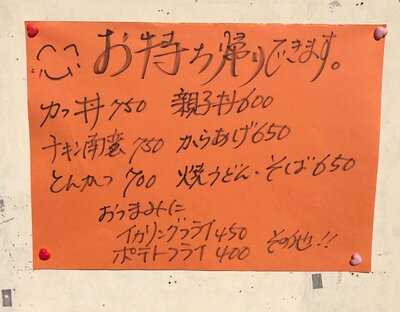 お持ち帰りできます。
カツ丼750 親子丼600
チキン南蛮750 からあげ650
とんかつ700 焼うどん・そば650
おつまみに
イカリングフライ450
ポテトフライ400 その他!!